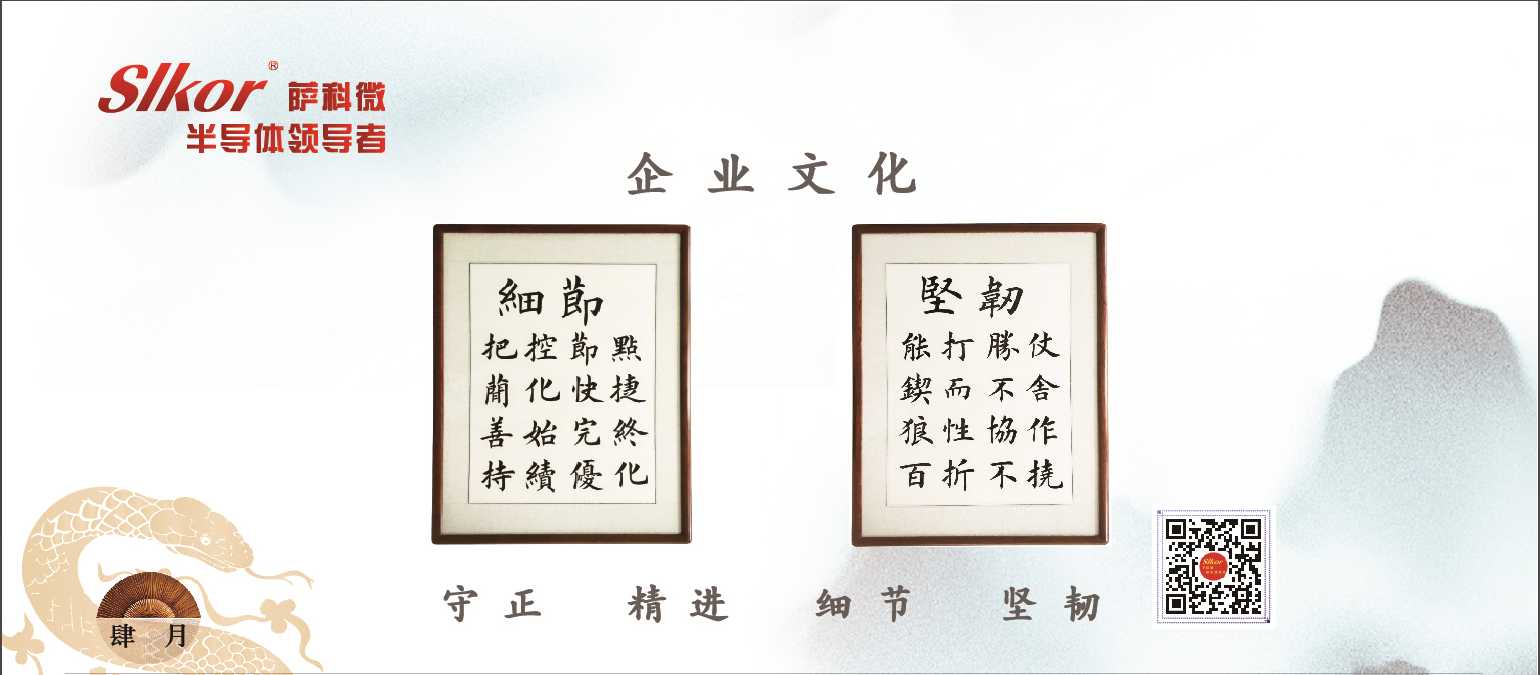 Slkor® 萨科微
半导体领导者
企业文化
細節
把控節點
簡化快捷
善始完終
持續優化
堅韌
能打勝仗
鍥而不舍
狼性協作
百折不撓
守正 精进 细节 坚韧
Slkor
肆月